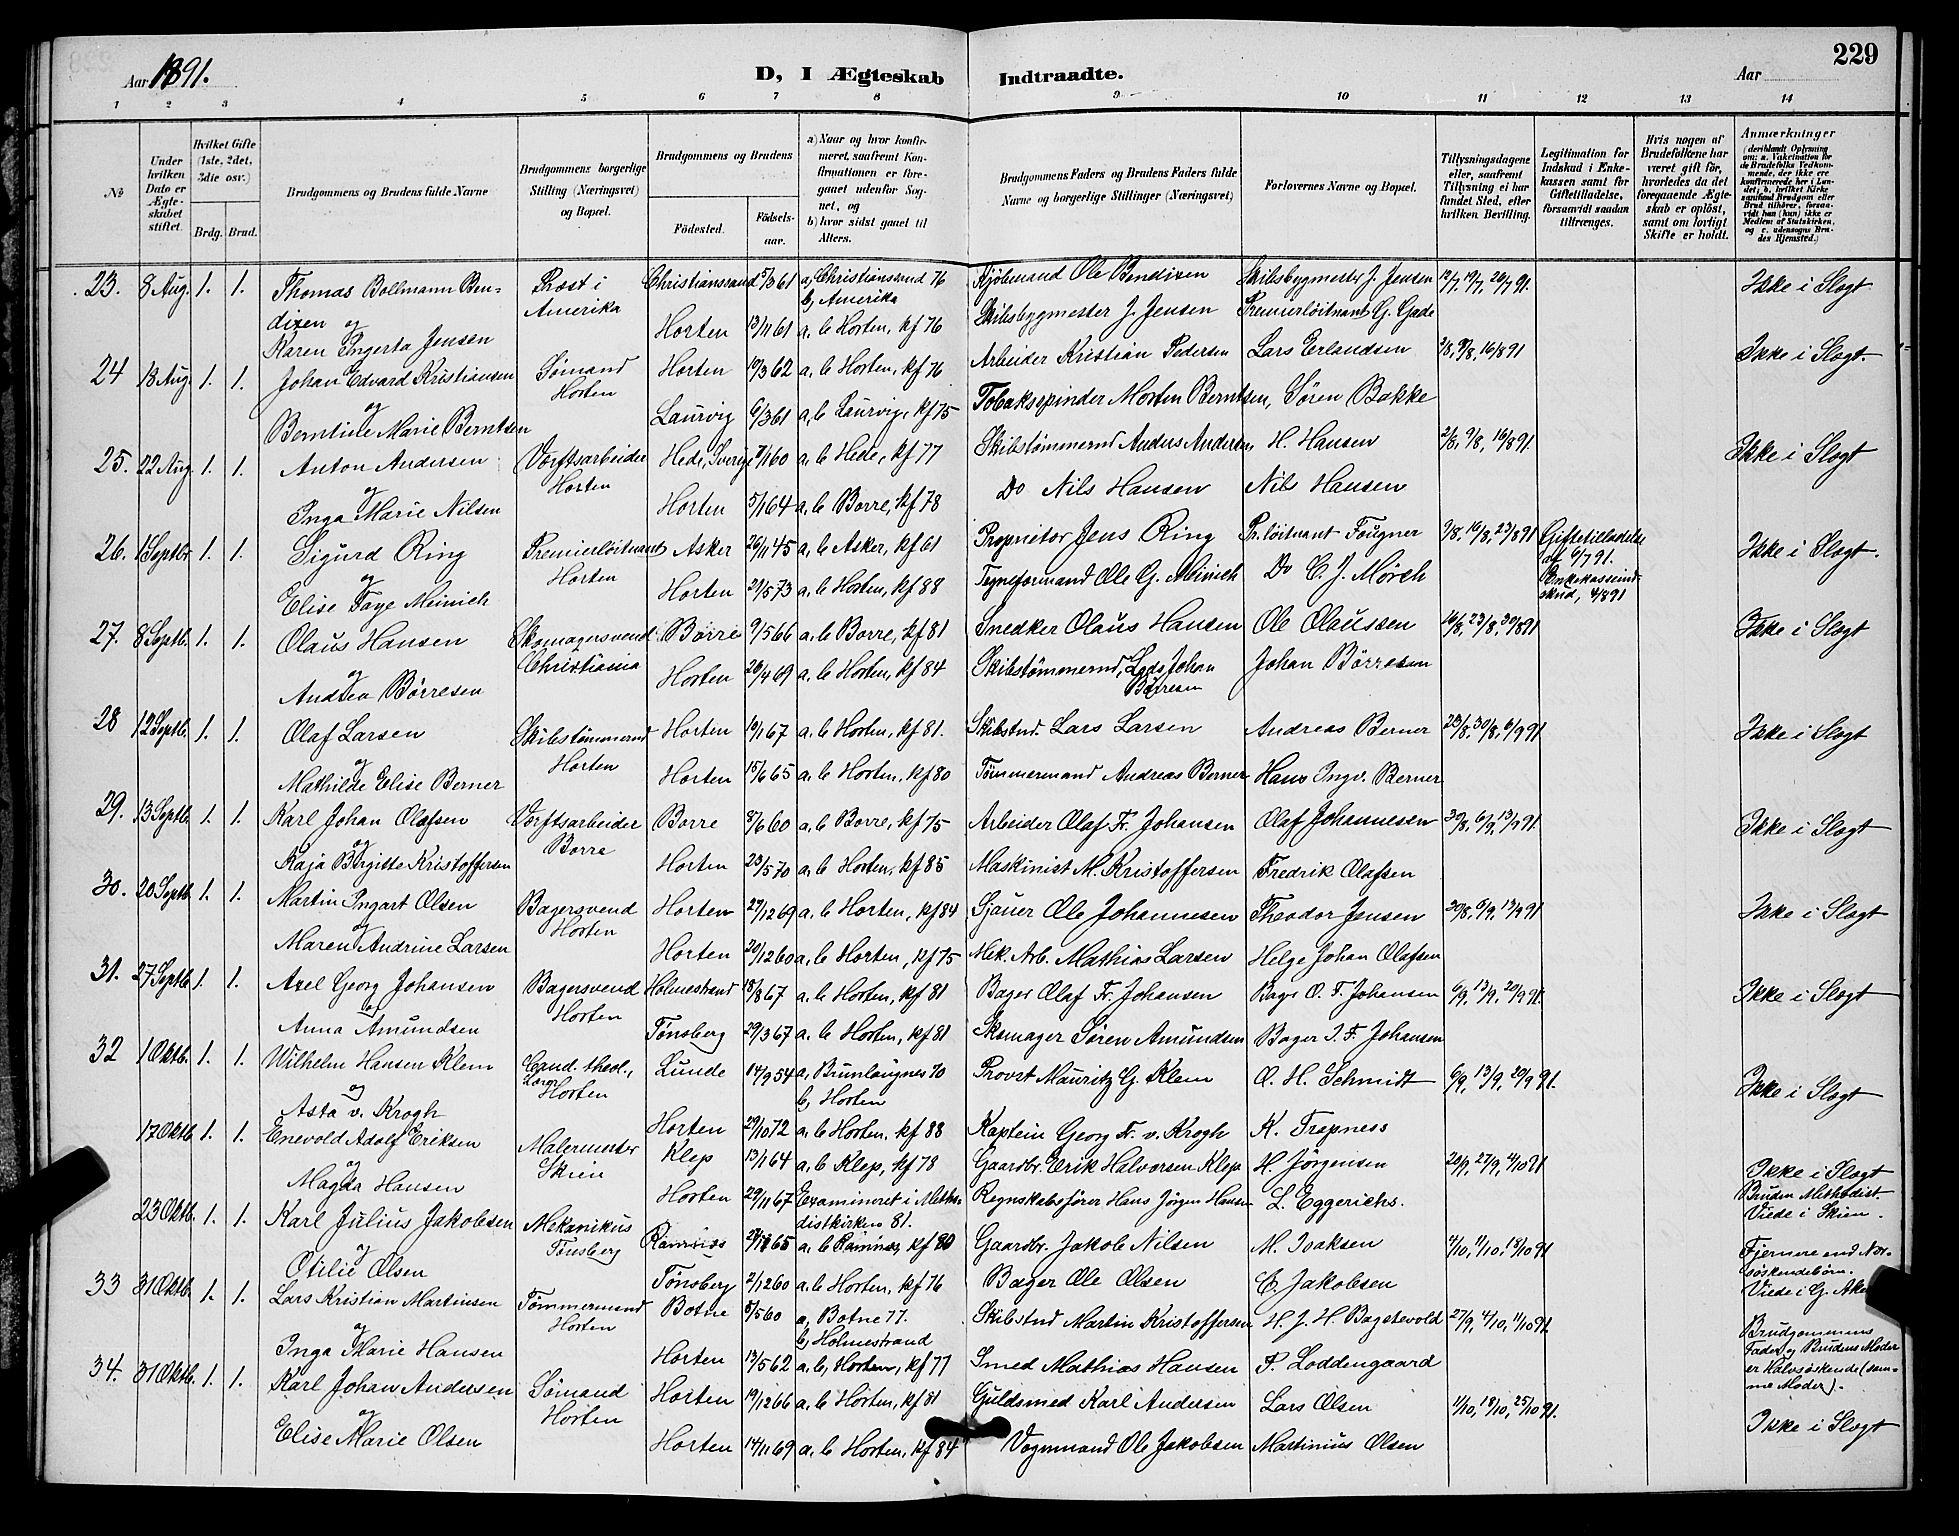 229
Aar 1891.
D, I Ægteskab Indtraadte.
Aar
1 2 3 4 5 6 7 8 9 10 11 12 13 14
№
Under hvilken Dato er Ægteskabet stiftet.
Hvilket Gifte (1ste, 2det, 3die osv.)
Brdg. Brud.
Brudgommens og Brudens fulde Navne
Brudgommens borgerlige Stilling (Næringsvei) og Bopæl.
Brudgommens og Brudens
Fødested.
Fødsels-aar.
a) Naar og hvor konfirmeret, saafremt Konfirmationen er foregaaet udenfor Sognet, og
b) hvor sidst gaaet til Alters.
Brudgommens Faders og Brudens Faders fulde Navne og borgerlige Stillinger (Næringsvei)
Forlovernes Navne og Bopæl.
Tillysningsdagene eller, saafremt Tillysning ei har fundet Sted, efter hvilken Bevilling.
Legitimation for Indskud i Enkekassen samt for Giftetilladelse, forsaavidt saadan tiltrænges.
Hvis nogen af Brudefolkene har været gift før, hvorledes da det foregaaende Ægteskab er opløst, samt om lovligt Skifte er holdt.
Anmærkninger (deriblandt Oplysning om: a. Vakcination for de Brudefolks Vedkommende, der ikke ere konfirmerede her i Landet; b. hvilket Kirkesamfund Brudgom eller Brud tilhører, forsaavidt han (hun) ikke er Medlem af Statskirken, og c. udensogns Brudes Hjemsted.)
23. 8 Aug. 1. 1. Thomas Bollmann Ben- Præst i Christianssand 5/3 61 a, Christianssand 76 Kjøbmand Ole Bendixen Skibsbygmester J. Jensen 12/7, 19/7, 26/7 91. Ikke i Slægt
dixen og Amerika b, Amerika
Karen Ingerta Jensen Horten 13/11 61 a, b Horten, kf 76 Skibsbygmester J. Jensen Premierløitnant G. Gade
24 18 Aug. 1. 1. Johan Edvard Kristiansen Sømand Horten 19/3 62 a, b Horten, kf 76 Arbeider Kristian Pedersen Lars Erlandsen 2/8, 9/8, 16/8 91 Ikke i Slægt.
og Horten
Berntine Marie Berntsen Laurvig 6/3 61 a, b Laurvig, kf 75 Tobaksspinder Morten Berntsen, Søren Bakke
25. 22 Aug. 1. 1. Anton Andersen Værftsarbeider Hede, Sverige 7/1 60 a, b Hede, kf 77 Skibstømmermd Anders Andersen H. Hansen 2/8, 9/8, 16/8 91. Ikke i Slægt
og Horten
Inga Marie Nilsen Horten 5/1 64 a, b Borre, kf 78 Do Nils Hansen Nils Hansen
26. 1 Septbr. 1. 1. Sigurd Ring Premierløitnant Asker 26/11 45 a, b Asker, kf 61 Proprietær Jens Ring Pr. løitnant Fougner 9/8, 16/8, 23/8 91 Giftetilladelse Ikke i Slægt.
og Horten 6/7 91.
Elise Faye Meinich Horten 29/5 73 a, b Horten, kf 88 Tegneformand Ole G. Meinich Do C. J. Mörch Enkekasseind-
skud, 4/8 91
27. 8 Septb. 1. 1. Olaus Hansen Skomagersvend Borre 9/5 66 a, b Borre, kf 81 Snedker Olaus Hansen Ole Olaussen 16/8, 23/8, 30/8 91 Ikke i Slægt
og Christiania
Andrea Börresen Horten 26/4 69 a, b Horten, kf 84 Skibstømmermd, Lods Johan Börresen Johan Börresen
28 12 Septb. 1. 1. Olaf Larsen Skibstømmermd Horten 19/1 67 a, b Horten, kf 81. Skibstmd. Lars Larsen Andreas Berner 23/8, 30/8, 6/9 91 Ikke i Slægt
og Horten
Mathilde Elise Berner Horten 15/6 65 a, b Horten, kf 80 Tømmermand Andreas Berner Hans Ingv. Berner
29. 13 Septb. 1. 1. Karl Johan Olafsen Værftsarbeider Borre 8/6 60 a, b Borre, kf 75 Arbeider Olaf Fr. Johansen Olaf Johannesen 30/8, 6/9, 13/9 91. Ikke i Slægt
og Borre
Kaja Birgitte Kristoffersen Horten 23/5 70 a, b Horten, kf 85 Maskinist M. Kristoffersen Fredrik Olafsen
30. 20 Septb. 1. 1. Martin Ingart Olsen Bagersvend Horten 29/12 69 a, b Horten, kf 84 Sjauer Ole Johannesen Theodor Jensen 30/8, 6/9, 13/9 91 Ikke i Slægt
og Horten
Maren Andrine Larsen Horten 20/12 60 a, b Horten, kf 75 Mek. Arb. Mathias Larsen Helge Johan Olafsen
31. 27 Septb. 1. 1. Axel Georg Johansen Bagersvend Holmestrand 18/8 67 a, b Horten, kf 81 Bager Olaf Fr. Johansen Bager O. F. Johansen 6/9, 13/9, 20/9 91. Ikke i Slægt
og Horten
Anna Amundsen Tønsberg 29/3 67 a, b Horten, kf 81 Skomager Søren Amundsen Bager J. F. Johansen
32 1 Oktb. 1. 1. Wilhelm Hansen Klem Cand. theol., Lunde 14/9 54 a, Brunlaugnes 70 Provst Mauritz G. Klem O. H. Schmidt 6/9, 13/9, 20/9 91. Ikke i Slægt
og Horten b, Horten
Asta v. Krogh Horten 29/10 72 a, b Horten, kf 88 Kaptein Georg Fr. v. Krogh K. Trapness
17 Oktb. 1. 1. Enevold Adolf Eriksen Malermester Klep 13/1 64 a, b Klep, kf 78 Gaardbr. Erik Halvorsen Klep H. Jörgensen 20/9, 27/9, 4/10 91 Ikke i Slægt
og Skien Bruden Methodist.
Magda Hansen Horten 29/11 67 Examineret i Metho- Regnskabsfører Hans Jørgen Hansen L. Eggerichs. Viede i Skien.
distkirken 81.
23 Oktb. 1. 1. Karl Julius Jakobsen Mekanikus Ramnæs 65 a, b Ramnæs kf 80 Gaardbr. Jakob Nilsen M. Isaksen 4/10, 11/10, 18/10 91 Fjernere end Næs-
og Tønsberg søskendebörn.
Otilie Olsen Tønsberg 2/12 60 a, b Horten, kf 76 Bager Ole Olsen C. Jakobsen Viede i G. Aker
33 31 Oktb. 1. 1. Lars Kristian Martinsen Tømmermand Botne 8/5 60 a, Botne 77. Skibstmd Martin Kristoffersen H. J. H. Bagstevold 27/9, 4/10, 11/10 91. Brudgommens
og Horten b, Holmestrand Fader og Brudens Moder
Inga Marie Hansen Horten 13/5 62 a, b, Horten, kf 77 Smed Mathias Hansen P. Loddengaard er Halvsøskende (sam-
me Moder).
34. 31 Oktb. 1. 1. Karl Johan Andersen Sømand Horten 19/12 66 a, b Horten, kf 81 Guldsmed Karl Andersen Lars Olsen 11/10, 18/10, 25/10 91. Ikke i Slægt
og Horten
Elise Marie Olsen Horten 14/11 69 a, b Horten, kf 84 Vognmand Ole Jakobsen Martinius Olsen